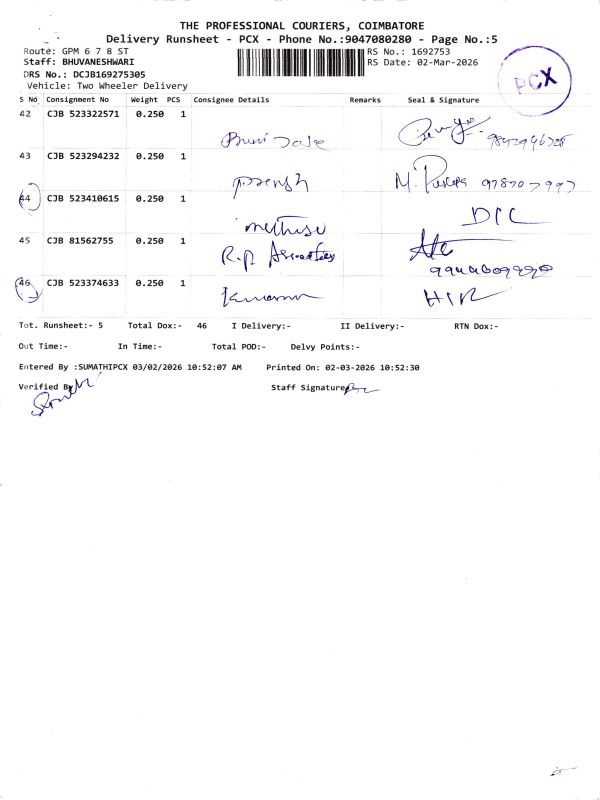 THE PROFESSIONAL COURIERS, COIMBATORE
Delivery Runsheet - PCX - Phone No.:9047080280 - Page No.:5
Route: GPM 6 7 8 ST
RS No.: 1692753
Staff: BHUVANESHWARI
RS Date: 02-Mar-2026
DRS No.: DCJB169275305
Vehicle: Two Wheeler Delivery
PCX
S No Consignment No Weight PCS Consignee Details Remarks Seal & Signature
42 CJB 523322571 0.250 1
43 CJB 523294232 0.250 1
M. 9787077997
44 CJB 523410615 0.250 1
D/C
45 CJB 81562755 0.250 1 R.P. Associates
46 CJB 523374633 0.250 1
Tot. Runsheet:- 5 Total Dox:- 46 I Delivery:- II Delivery:- RTN Dox:-
Out Time:- In Time:- Total POD:- Delvy Points:-
Entered By :SUMATHIPCX 03/02/2026 10:52:07 AM Printed On: 02-03-2026 10:52:30
Verified By
Staff Signature